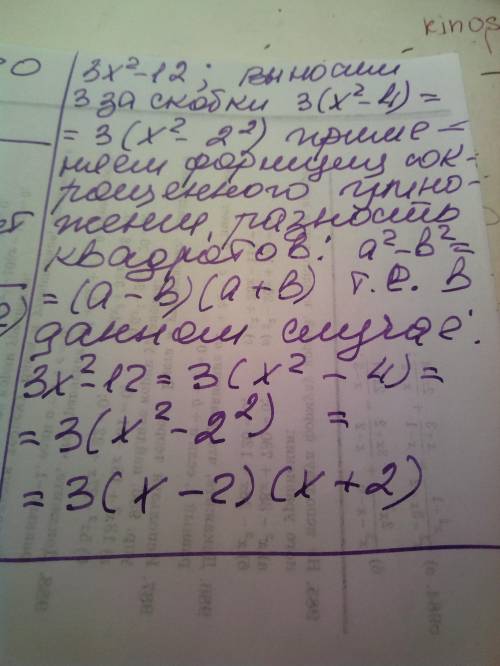 kinos
3x²-12; выносим
3 за скобки 3(x²-4)=
=3(x²-2²) приме-
няем формулу сок-
ращенного умно-
жения, разность
квадратов: a²-b²=
=(a-b)(a+b) т.е. в
данном случае:
3x²-12=3(x²-4)=
=3(x²-2²) =
=3(x-2)(x+2)